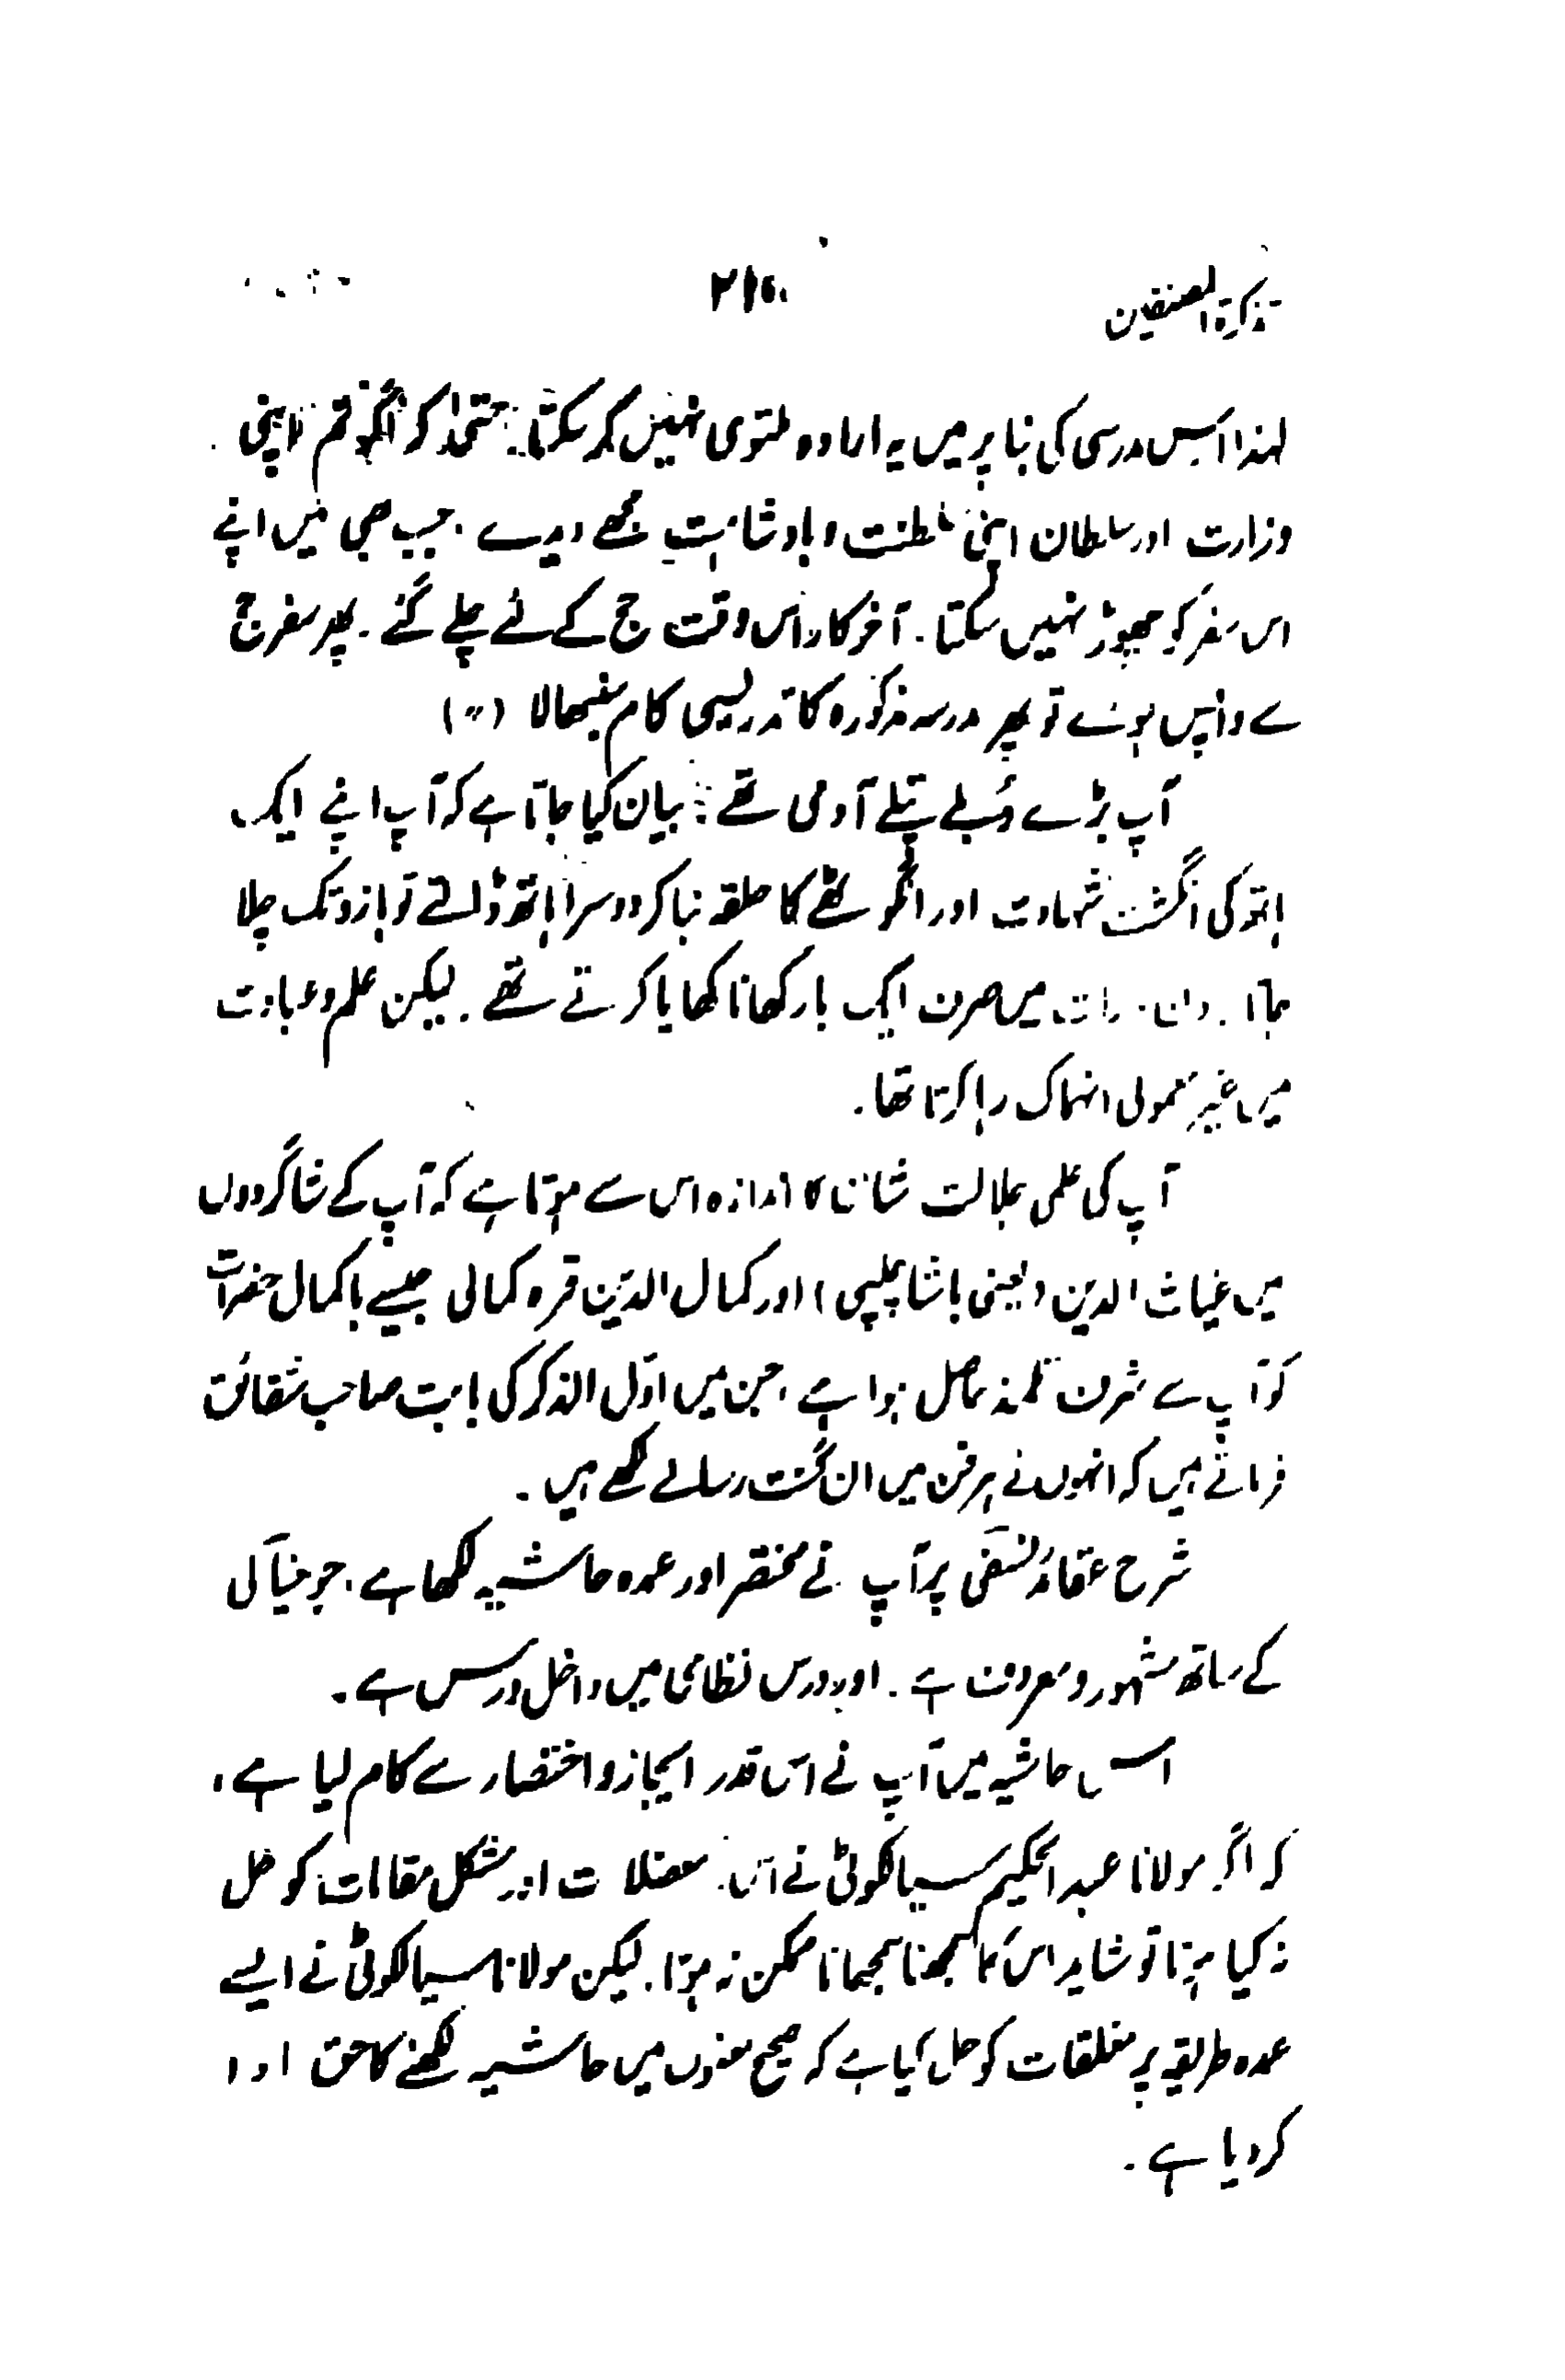 تذکرۃ المصنفین
لہذا اس مدرسی کی بنا پر میں یہ ارادہ ملتوی نہیں کر سکتا. حتیٰ کہ اگر تم اپنی
وزارت اور سلطان اپنی سلطنت و بادشاہت مجھے دیدے. جب بھی میں اپنے
اس سفر کو چھوڑ نہیں سکتا. آخر کار اس وقت حج کے لئے چلے گئے. پھر سفر حج
سے واپس ہوئے تو پھر مدرسہ مذکورہ کا تدریسی کام سنبھالا (〃)
آپ بڑے دُبلے پتلے آدمی تھے: بیان کیا جاتا ہے کہ آپ اپنے ایک
ہاتھ کی انگشت شہادت اور انگوٹھے کا حلقہ بنا کر دوسرا ہاتھ ڈالتے تو بازو تک چلا
جاتا. دن رات میں صرف ایک بار کھانا کھایا کرتے تھے. لیکن علم و عبادت
میں غیر معمولی انہماک رہا کرتا تھا.
آپ کی علمی جلالت شان کا اندازہ اس سے ہوتا ہے کہ آپ کے شاگردوں
میں غیاث الدین (یعنی باشا چلپی) اور کمال الدین قرہ کمالی جیسے باکمال حضرات
کو آپ سے شرف تلمذ حاصل ہوا ہے، جن میں اوّل الذکر کی بابت صاحب شقائق
فرماتے ہیں کہ انہوں نے ہر فن میں ان گنت رسالے لکھے ہیں.
شرح عقائد نسفی پر آپ نے مختصر اور عمدہ حاشیہ لکھا ہے، جو خیالی
کے ساتھ مشہور و معروف ہے. اور درس نظامی میں داخل درس ہے.
اس حاشیہ میں آپ نے اس قدر ایجاز و اختصار سے کام لیا ہے،
کہ اگر مولانا عبد الحکیم سیالکوٹی نے اس معضلات اور مشکل مقامات کو حل
نہ کیا ہوتا تو شاید اس کا سمجھنا سمجھانا ممکن نہ ہوتا. لیکن مولانا سیالکوٹی نے ایسے
عمدہ طریقہ پر مغلقات کو حل کیا ہے کہ صحیح معنوں میں حاشیہ لکھنے کا حق ادا
کر دیا ہے.